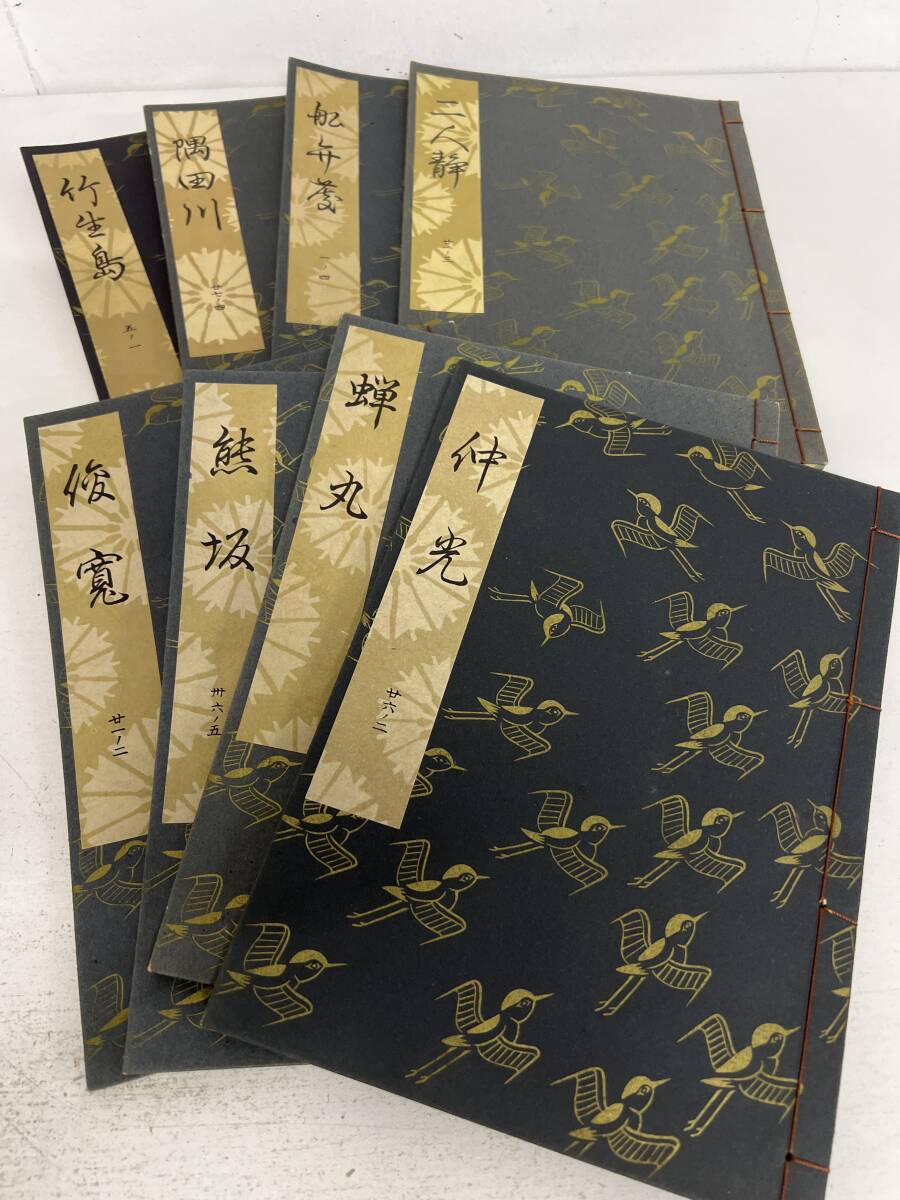 竹生島
五ノ一
隅田川
廿七ノ四
船弁慶
一ノ四
二人静
廿ノ三
俊寛
廿一ノ二
熊坂
卅六ノ五
蝉丸
仲光
廿六ノ二